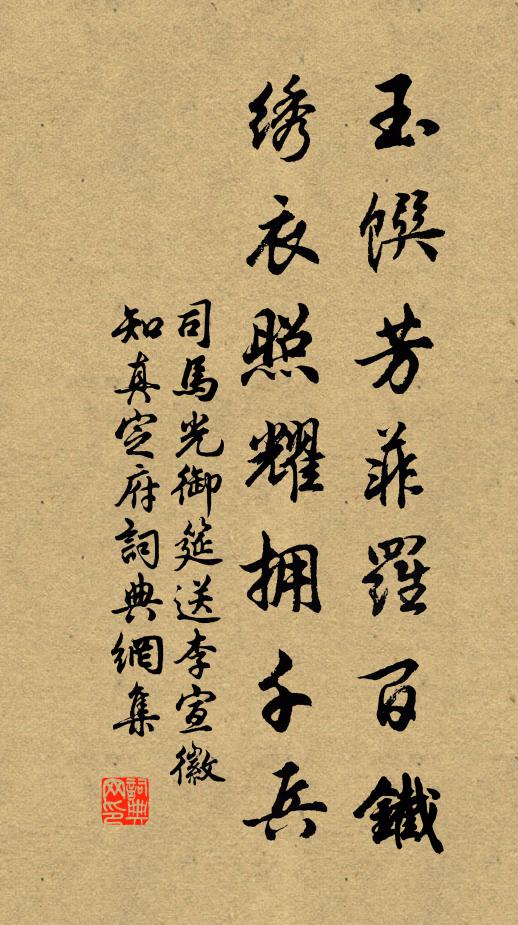 玉馔芳菲羅百鐵
绣衣照耀拥千兵
司馬光御筵送李宣徽
知真定府詞典網集
詞典网印